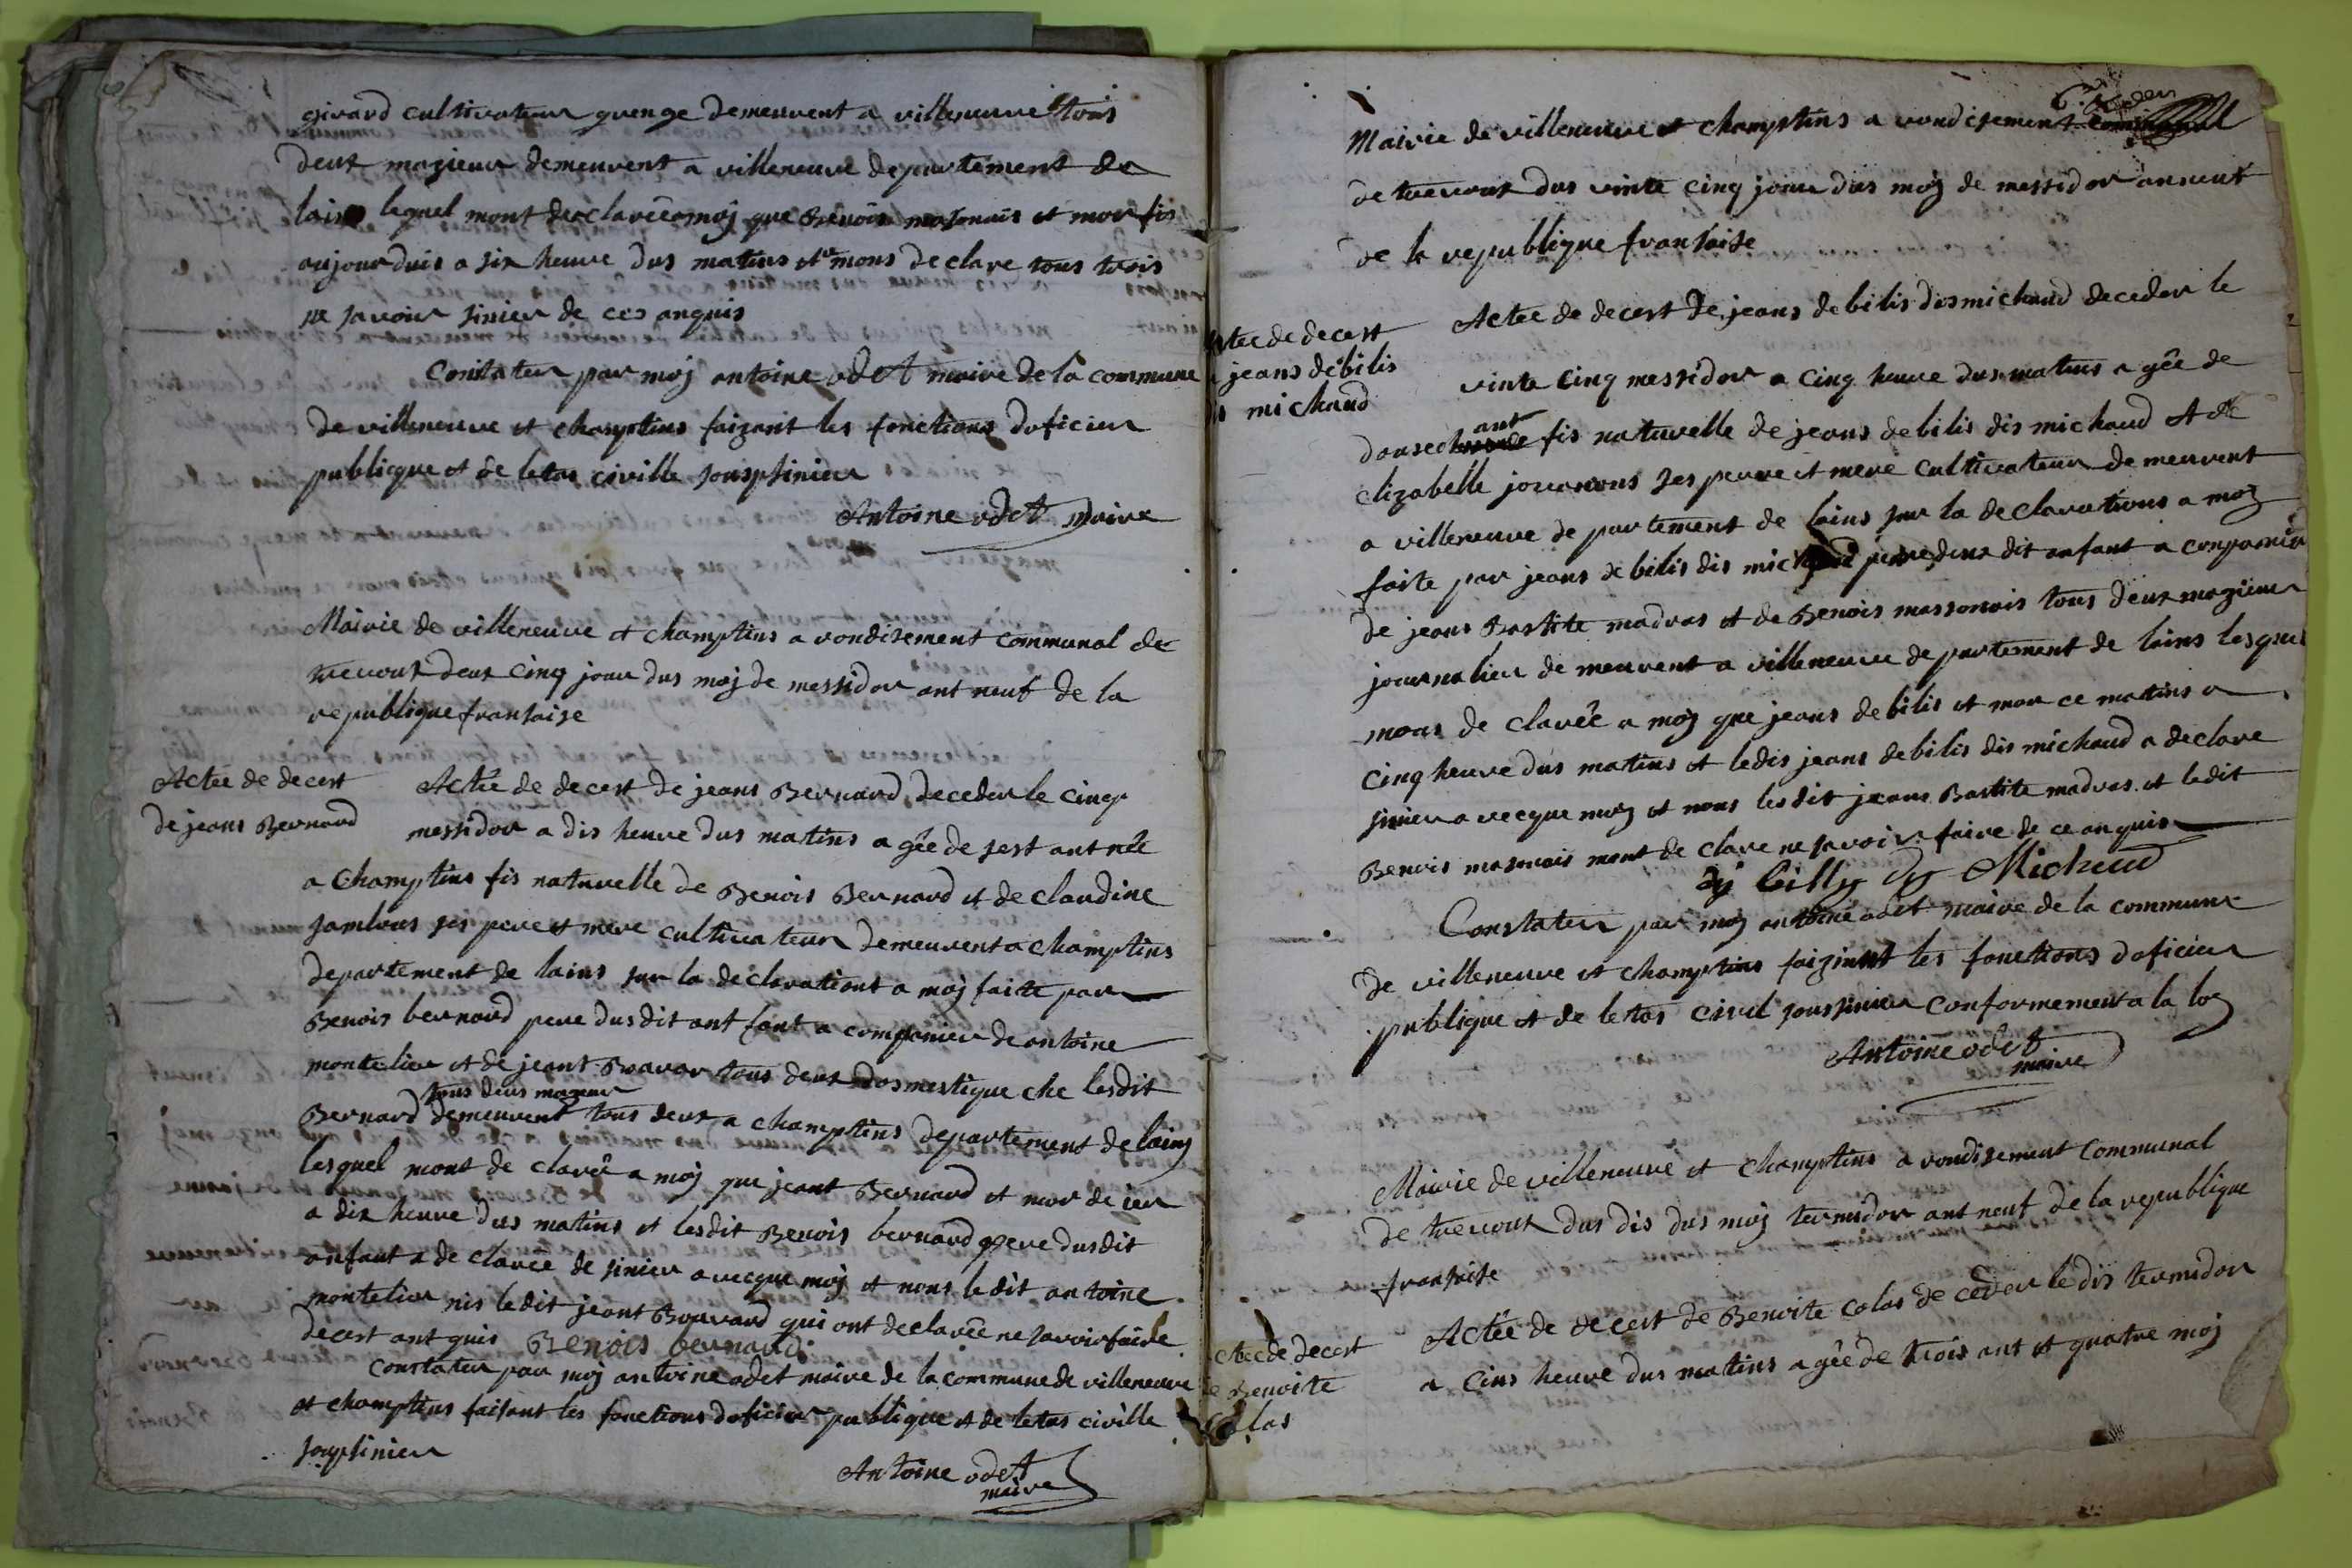 girard cultivateur grenge demeurent a villeneuve tous
deux mazieur demeurent a villeneuve departement de
lains lequel mont declarée a moj que Benois masonnais et mor fis
aujourduis a six heure dus matins et mons declare tous trois
ne savoir sinier de ces anquis
Constater par moj antoine odet maire de la commune
de villeneuve et champtins faizant les fonctions doficier
publicque et de letas civille souspsinier
Antoine odet maire
Mairie de villeneuve et champtins a rondisement communal de
trevoux deux cinq jour dus moj de messidor ant neuf de la
republique fransaise
Actée de decest
de jeans Bernard
Actée de decest de jeans Bernard deceder le cinq
messidor a dis heure dus matins agée de sest ant née
a Champtins fis naturelle de Benois Bernard et de claudine
jamlous ses pere et mere cultivateur demeurent a champtins
departement de lains sur la declarationt a moj faite par
Benois bernard pere dus dit ant fant a companier de antoine
montelier et de jeant Bravar tous deux dosmestique che lesdit
tous deux mazeur
Bernard demeurent tous deux a champtins departement de lains
lesquel mont de clarê a moj que jeant Bernard et mor de ier
a dix heure dus matins et lesdit Benois bernard pere dus dit
anfant a de clarée de sinier avecque moj et nons le dit antoine
montelier nis ledit jeant Bravard qui ont declarée ne savoir faire
decest ant quis Benois bernard
Constater par moj antoine odet maire de la commune de villeneuve
et champtins faisant les fonctions doficier publique et de letas civille
soupsinier
Antoine odet
maire
Mairie de villeneuve et champtins a rondisement
de trevoux dus vinte cinq jour dus moj de messidor an neuf
de la republique fransaise
Actee de decest
jeans debilis
michaud
Actee de decest de jeans debilis dis michaud deceder le
vinte cinq messidor a cinq heure dus matins agée de
ant
fis naturelle de jeans debilis dis michaud et de
elizabelle jouanons ses perre et mere cultivateur demeurent
a villeneuve departement de lains sur la declarations a moj
faite par jeans debilis dis michaud perre dus dit anfant a companier
de jeans Bastite madras et de Benois massonois tous deux mazieur
journalier demeurent a villeneuve departement de lains lesquel
mons de clarée a moj que jeans debilis et mor ce matins a
cinq heure dus matins et ledis jeans debilis dis michaud a declare
sinier avecque moj et nons lesdit jeans Bastite madras et ledit
Benois masonois mont de clare ne savoir faire de ce anquis
dj billy dy Michaud
Constater par moj antoine odet maire de la commune
de villeneuve et champtins faizint les fonctions doficier
publique et de letas civil soussinier conformement a la loj
Antoine odet
maire
Mairie de villeneuve et champtins a rondisement communal
de trevoux dus dis dus moj termidor ant neuf de la republique
fransaise
Actee de decest
de Benoite
Colas
Actée de decest de Benoite colas de ceder le dis termidor
a cins heure dus matins agée de trois ant et quatre moj